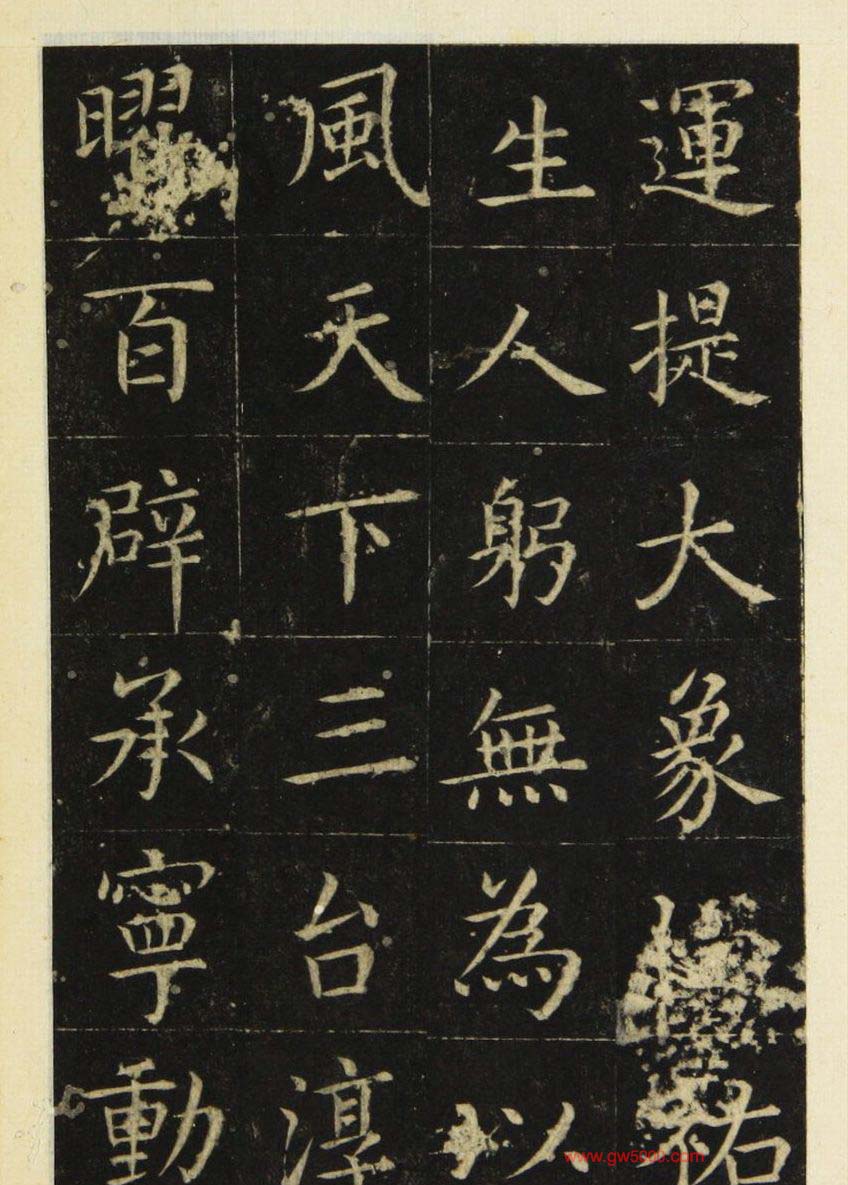 運提大象祐
生人躬無為以
風天下三台淳
曜百辟承寧動
www.gw5000.com